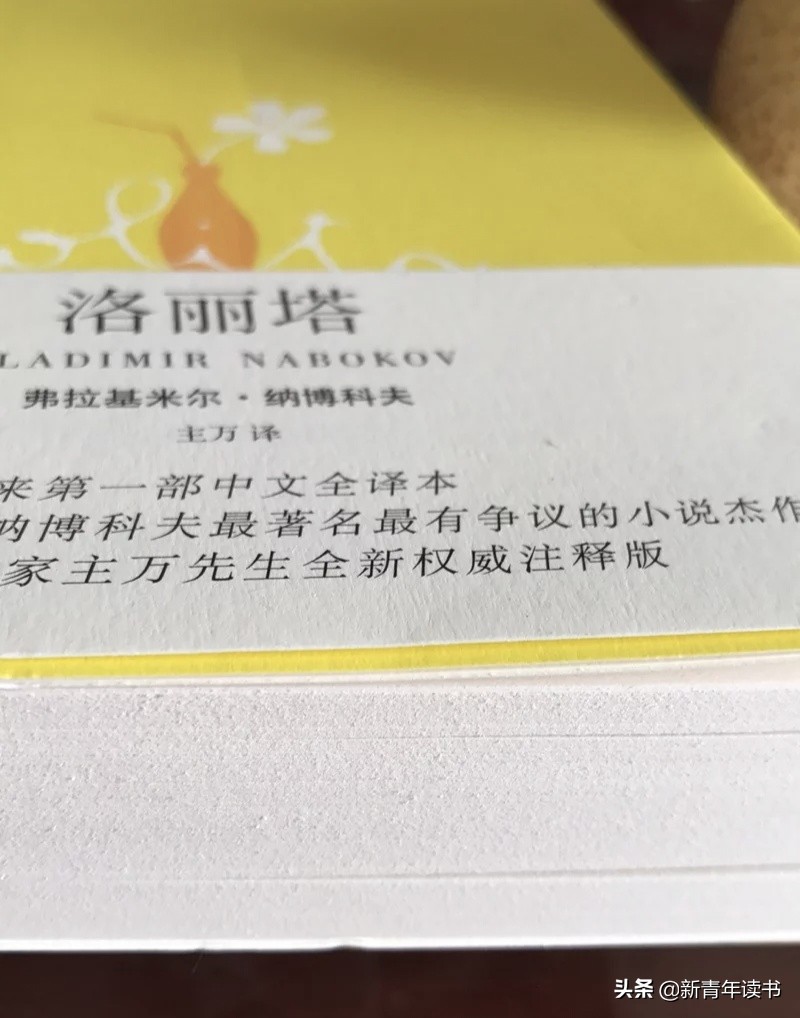 洛丽塔
LADIMIR NABOKOV
弗拉基米尔·纳博科夫
主万 译
来第一部中文全译本
纳博科夫最著名最有争议的小说杰作
家主万先生全新权威注释版
头条 @新青年读书